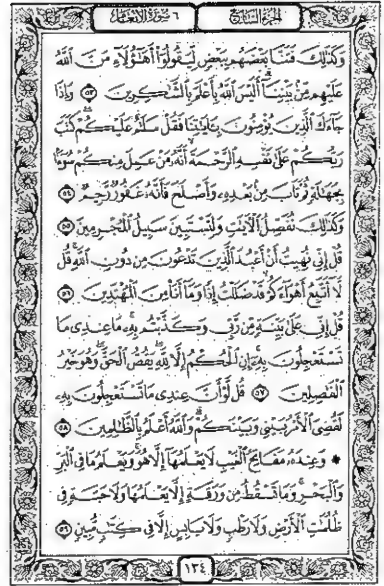 الجزء السابع ٦ سورة الأنعام
وَكَذَٰلِكَ فَتَنَّا بَعْضَهُم بِبَعْضٍ لِّيَقُولُوٓا۟ أَهَٰٓؤُلَآءِ مَنَّ ٱللَّهُ
عَلَيْهِم مِّنۢ بَيْنِنَآ أَلَيْسَ ٱللَّهُ بِأَعْلَمَ بِٱلشَّٰكِرِينَ ٥٣ وَإِذَا
جَآءَكَ ٱلَّذِينَ يُؤْمِنُونَ بِـَٔايَٰتِنَا فَقُلْ سَلَٰمٌ عَلَيْكُمْ كَتَبَ
رَبُّكُمْ عَلَىٰ نَفْسِهِ ٱلرَّحْمَةَ أَنَّهُۥ مَنْ عَمِلَ مِنكُمْ سُوٓءًۢا
بِجَهَٰلَةٍ ثُمَّ تَابَ مِنۢ بَعْدِهِۦ وَأَصْلَحَ فَأَنَّهُۥ غَفُورٌ رَّحِيمٌ ٥٤
وَكَذَٰلِكَ نُفَصِّلُ ٱلْـَٔايَٰتِ وَلِتَسْتَبِينَ سَبِيلُ ٱلْمُجْرِمِينَ ٥٥
قُلْ إِنِّى نُهِيتُ أَنْ أَعْبُدَ ٱلَّذِينَ تَدْعُونَ مِن دُونِ ٱللَّهِ قُل
لَّآ أَتَّبِعُ أَهْوَآءَكُمْ قَدْ ضَلَلْتُ إِذًا وَمَآ أَنَا۠ مِنَ ٱلْمُهْتَدِينَ ٥٦
قُلْ إِنِّى عَلَىٰ بَيِّنَةٍ مِّن رَّبِّى وَكَذَّبْتُم بِهِۦ مَا عِندِى مَا
تَسْتَعْجِلُونَ بِهِۦٓ إِنِ ٱلْحُكْمُ إِلَّا لِلَّهِ يَقُصُّ ٱلْحَقَّ وَهُوَ خَيْرُ
ٱلْفَٰصِلِينَ ٥٧ قُل لَّوْ أَنَّ عِندِى مَا تَسْتَعْجِلُونَ بِهِۦ
لَقُضِىَ ٱلْأَمْرُ بَيْنِى وَبَيْنَكُمْ وَٱللَّهُ أَعْلَمُ بِٱلظَّٰلِمِينَ ٥٨
* وَعِندَهُۥ مَفَاتِحُ ٱلْغَيْبِ لَا يَعْلَمُهَآ إِلَّا هُوَ وَيَعْلَمُ مَا فِى ٱلْبَرِّ
وَٱلْبَحْرِ وَمَا تَسْقُطُ مِن وَرَقَةٍ إِلَّا يَعْلَمُهَا وَلَا حَبَّةٍ فِى
ظُلُمَٰتِ ٱلْأَرْضِ وَلَا رَطْبٍ وَلَا يَابِسٍ إِلَّا فِى كِتَٰبٍ مُّبِينٍ ٥٩
١٣٤